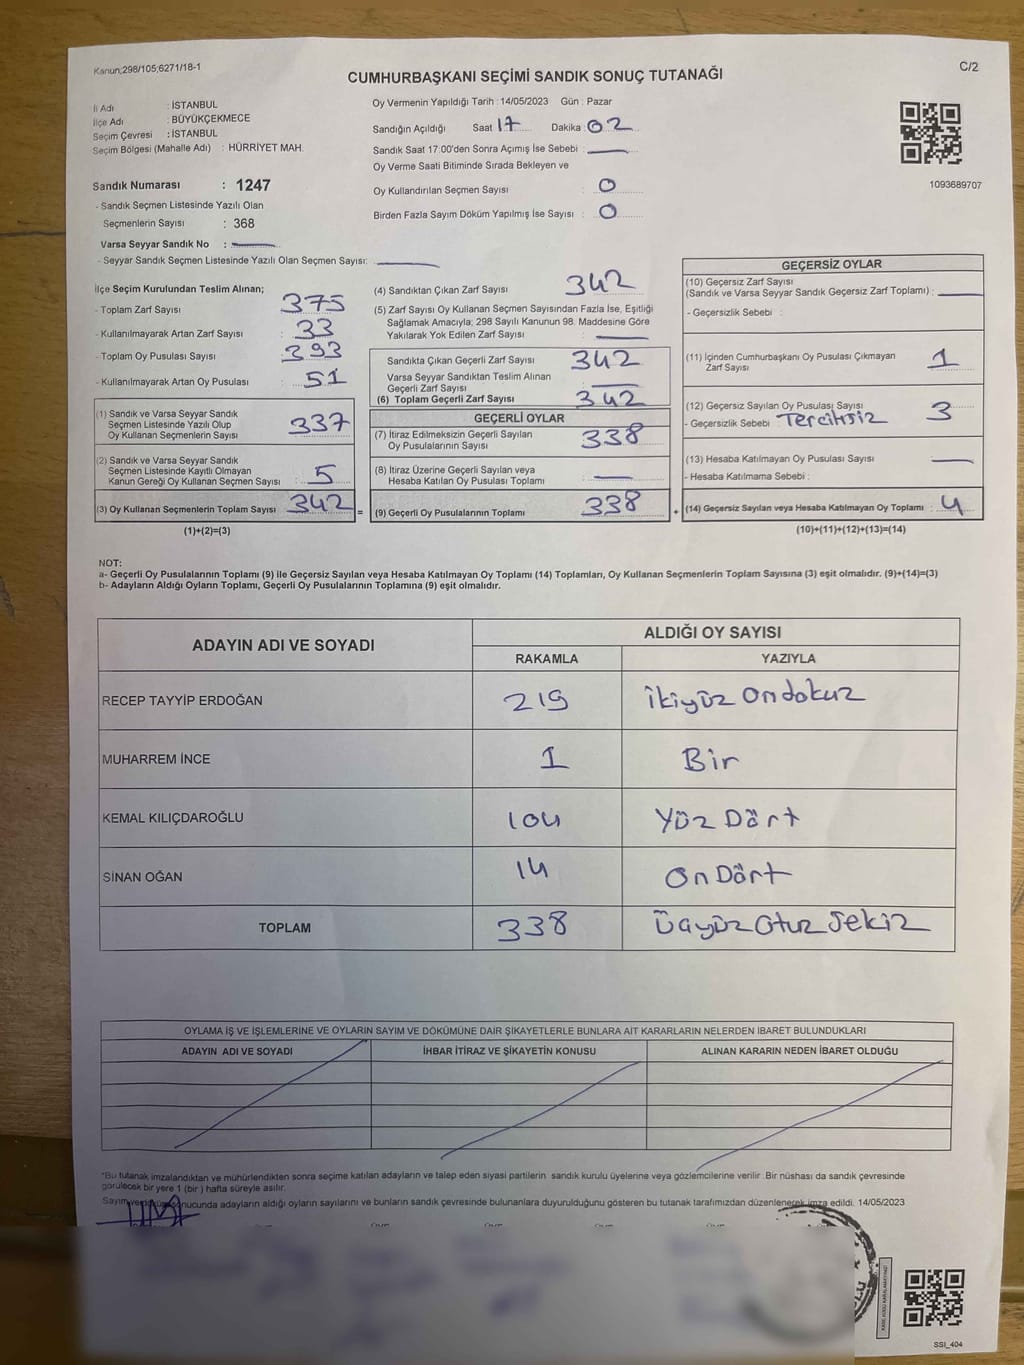 Kanun;298/105;6271/18-1
C/2
CUMHURBAŞKANI SEÇİMİ SANDIK SONUÇ TUTANAĞI
İl Adı : İSTANBUL
İlçe Adı : BÜYÜKÇEKMECE
Seçim Çevresi : İSTANBUL
Seçim Bölgesi (Mahalle Adı) : HÜRRİYET MAH.
Sandık Numarası : 1247
- Sandık Seçmen Listesinde Yazılı Olan
Seçmenlerin Sayısı : 368
Varsa Seyyar Sandık No :
- Seyyar Sandık Seçmen Listesinde Yazılı Olan Seçmen Sayısı:
Oy Vermenin Yapıldığı Tarih : 14/05/2023 Gün : Pazar
Sandığın Açıldığı Saat 17 Dakika : 02
Sandık Saat 17:00'den Sonra Açımış İse Sebebi :
Oy Verme Saati Bitiminde Sırada Bekleyen ve
Oy Kullandırılan Seçmen Sayısı : 0
Birden Fazla Sayım Döküm Yapılmış İse Sayısı : 0
1093689707
İlçe Seçim Kurulundan Teslim Alınan;
- Toplam Zarf Sayısı : 375
- Kullanılmayarak Artan Zarf Sayısı : 33
- Toplam Oy Pusulası Sayısı : 393
- Kullanılmayarak Artan Oy Pusulası : 51
(1) Sandık ve Varsa Seyyar Sandık
Seçmen Listesinde Yazılı Olup
Oy Kullanan Seçmenlerin Sayısı : 337
(2) Sandık ve Varsa Seyyar Sandık
Seçmen Listesinde Kayıtlı Olmayan
Kanun Gereği Oy Kullanan Seçmen Sayısı : 5
(3) Oy Kullanan Seçmenlerin Toplam Sayısı : 342 =
(1)+(2)=(3)
(4) Sandıktan Çıkan Zarf Sayısı : 342
(5) Zarf Sayısı Oy Kullanan Seçmen Sayısından Fazla İse, Eşitliği
Sağlamak Amacıyla; 298 Sayılı Kanunun 98. Maddesine Göre
Yakılarak Yok Edilen Zarf Sayısı :
Sandıkta Çıkan Geçerli Zarf Sayısı : 342
Varsa Seyyar Sandıktan Teslim Alınan
Geçerli Zarf Sayısı :
(6) Toplam Geçerli Zarf Sayısı : 342
GEÇERLİ OYLAR
(7) İtiraz Edilmeksizin Geçerli Sayılan
Oy Pusulalarının Sayısı : 338
(8) İtiraz Üzerine Geçerli Sayılan veya
Hesaba Katılan Oy Pusulası Toplamı :
(9) Geçerli Oy Pusulalarının Toplamı : 338 +
GEÇERSİZ OYLAR
(10) Geçersiz Zarf Sayısı
(Sandık ve Varsa Seyyar Sandık Geçersiz Zarf Toplamı) :
- Geçersizlik Sebebi :
(11) İçinden Cumhurbaşkanı Oy Pusulası Çıkmayan
Zarf Sayısı : 1
(12) Geçersiz Sayılan Oy Pusulası Sayısı : 3
- Geçersizlik Sebebi : Tercihsiz
(13) Hesaba Katılmayan Oy Pusulası Sayısı :
- Hesaba Katılmama Sebebi :
(14) Geçersiz Sayılan veya Hesaba Katılmayan Oy Toplamı : 4
(10)+(11)+(12)+(13)=(14)
NOT:
a- Geçerli Oy Pusulalarının Toplamı (9) ile Geçersiz Sayılan veya Hesaba Katılmayan Oy Toplamı (14) Toplamları, Oy Kullanan Seçmenlerin Toplam Sayısına (3) eşit olmalıdır. (9)+(14)=(3)
b- Adayların Aldığı Oyların Toplamı, Geçerli Oy Pusulalarının Toplamına (9) eşit olmalıdır.
ADAYIN ADI VE SOYADI
ALDIĞI OY SAYISI
RAKAMLA YAZIYLA
RECEP TAYYİP ERDOĞAN 219 İkiyüz Ondokuz
MUHARREM İNCE 1 Bir
KEMAL KILIÇDAROĞLU 104 Yüz Dört
SİNAN OĞAN 14 On Dört
TOPLAM 338 Üçyüz Otuz Sekiz
OYLAMA İŞ VE İŞLEMLERİNE VE OYLARIN SAYIM VE DÖKÜMÜNE DAİR ŞİKAYETLERLE BUNLARA AİT KARARLARIN NELERDEN İBARET BULUNDUKLARI
ADAYIN ADI VE SOYADI İHBAR İTİRAZ VE ŞİKAYETİN KONUSU ALINAN KARARIN NEDEN İBARET OLDUĞU
*Bu tutanak imzalandıktan ve mühürlendikten sonra seçime katılan adayların ve talep eden siyasi partilerin sandık kurulu üyelerine veya gözlemcilerine verilir .Bir nüshası da sandık çevresinde
görülecek bir yere 1 (bir ) hafta süreyle asılır.
Sayım ve döküm sonucunda adayların aldığı oyların sayılarını ve bunların sandık çevresinde bulunanlara duyurulduğunu gösteren bu tutanak tarafımızdan düzenlenerek imza edildi. 14/05/2023
SSİ_404